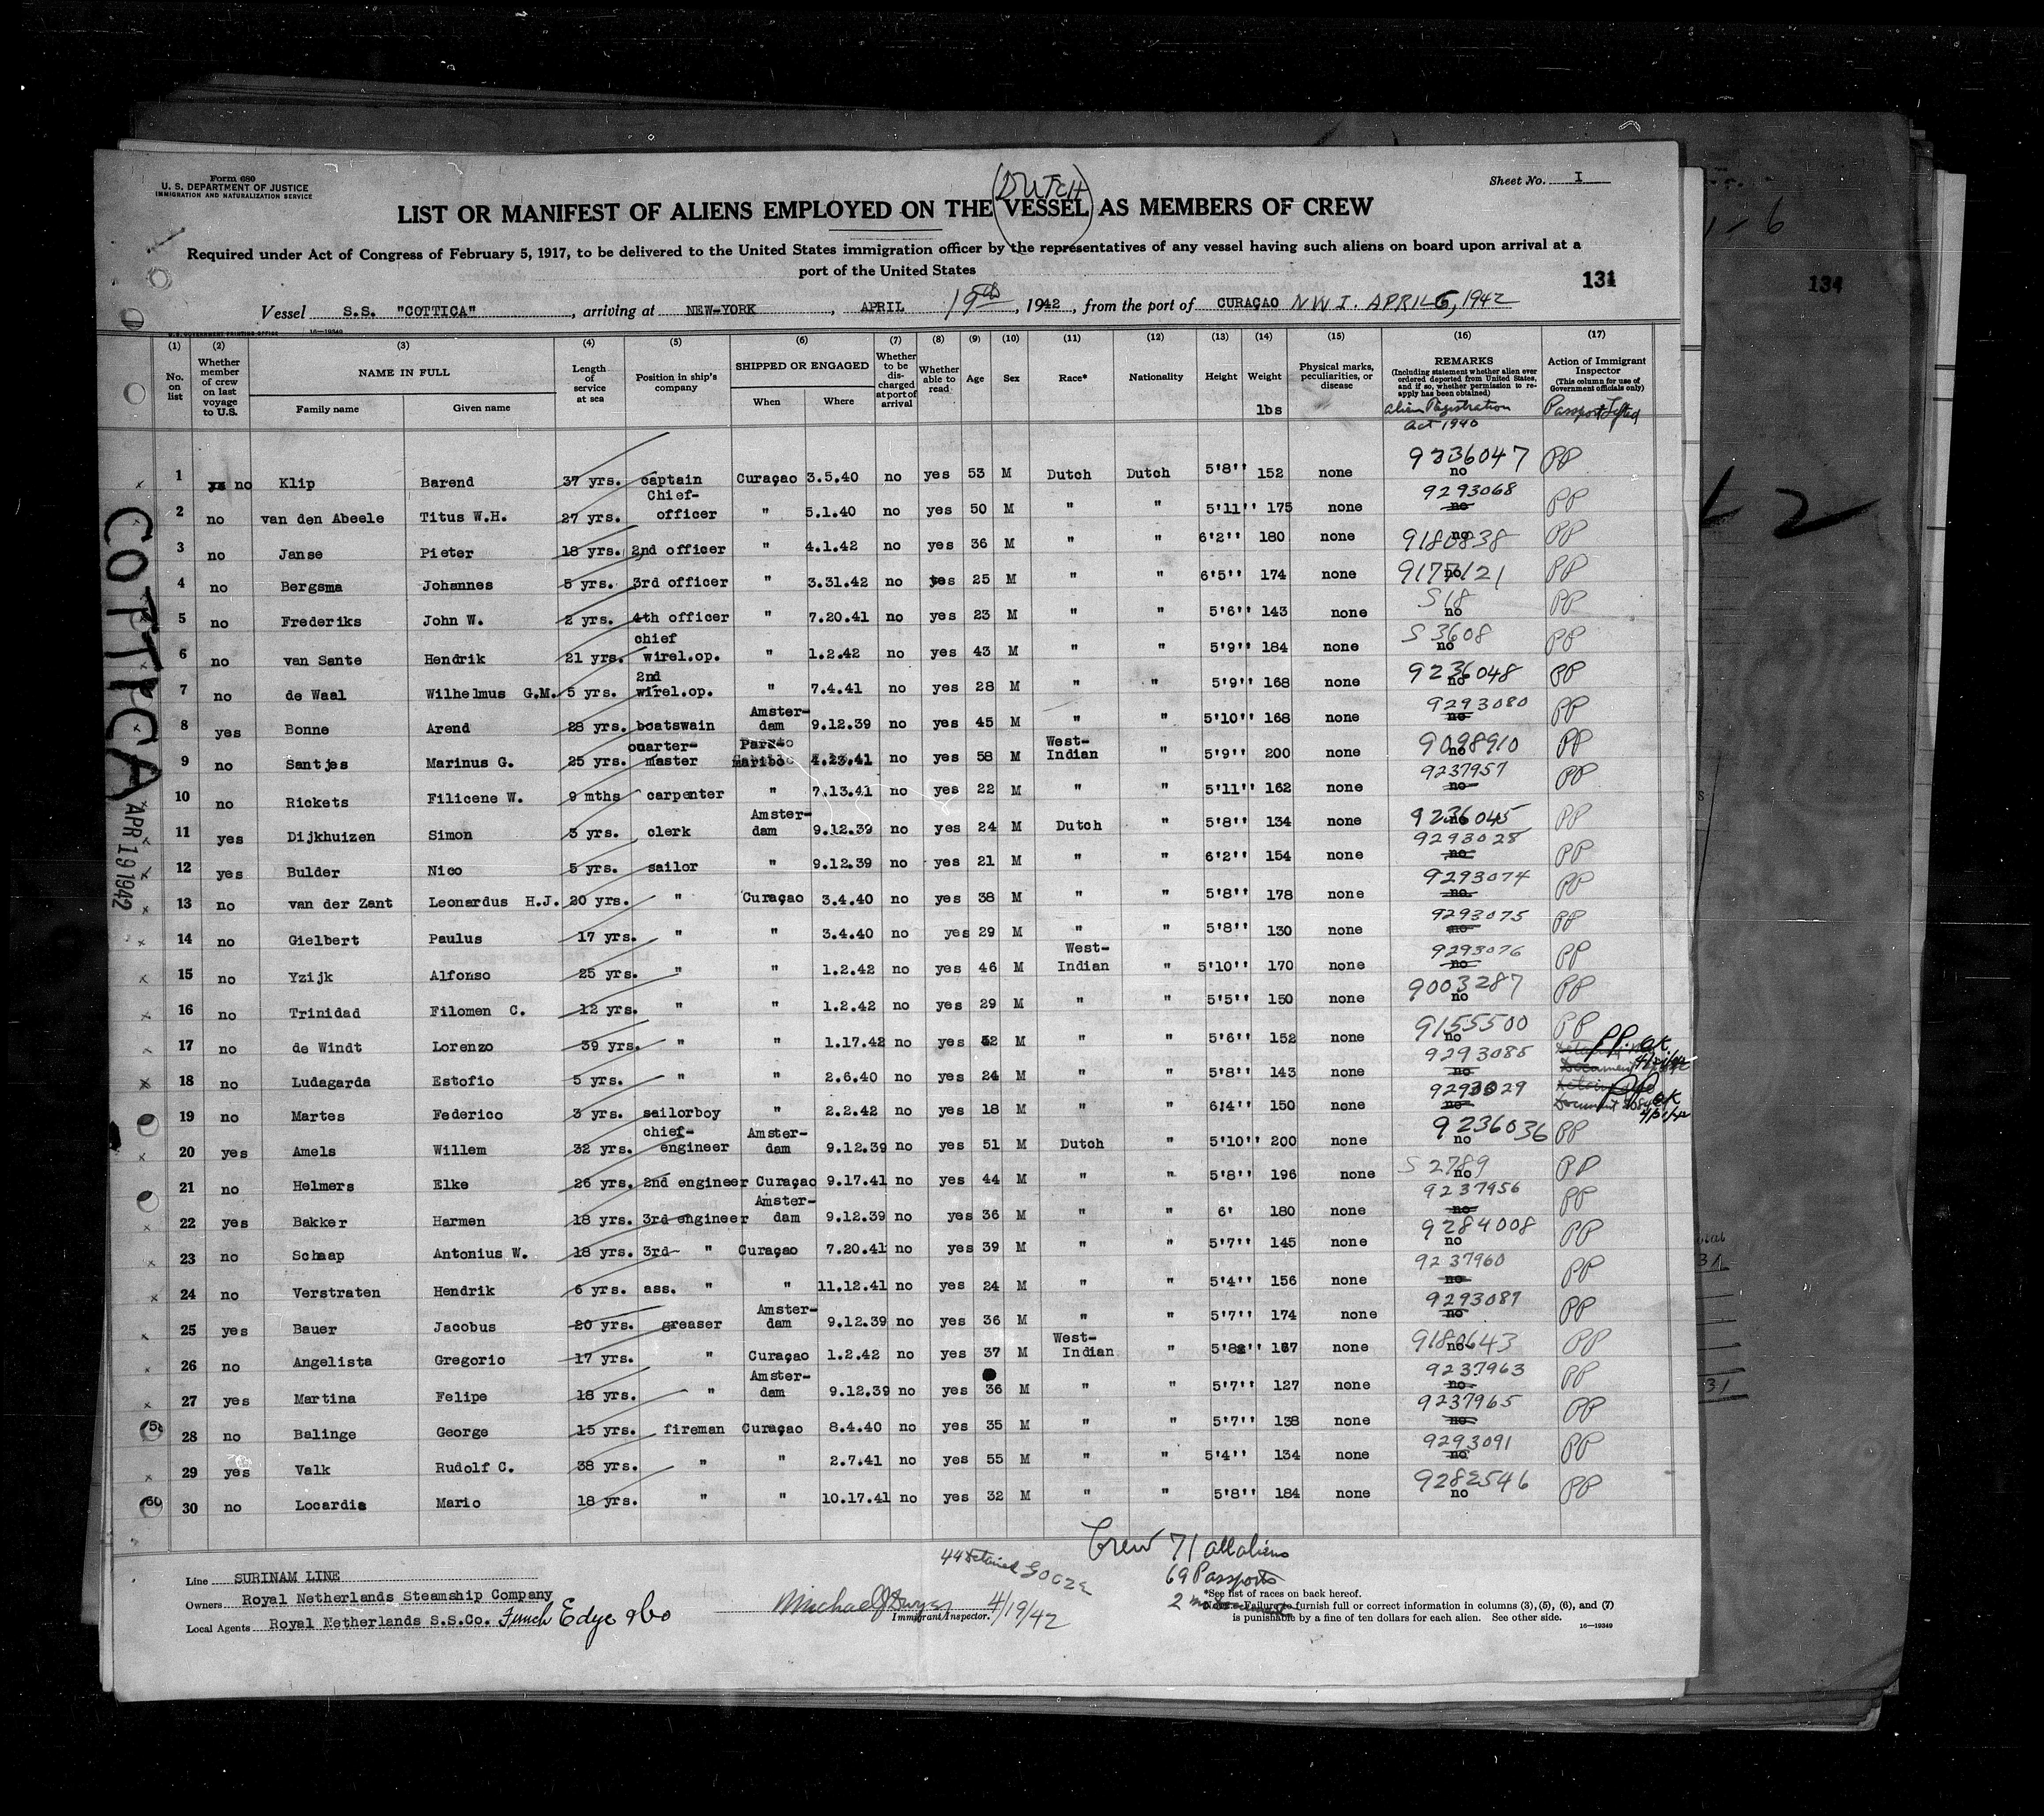 Form 680
U. S. DEPARTMENT OF JUSTICE
IMMIGRATION AND NATURALIZATION SERVICE
Sheet No. I
(DUTCH)
LIST OR MANIFEST OF ALIENS EMPLOYED ON THE VESSEL AS MEMBERS OF CREW
Required under Act of Congress of February 5, 1917, to be delivered to the United States immigration officer by the representatives of any vessel having such aliens on board upon arrival at a
port of the United States
131
134
Vessel S.S. "COTTICA", arriving at NEW-YORK, APRIL 19th, 1942, from the port of CURAÇAO NWI. APRIL 6, 1942
U.S. GOVERNMENT PRINTING OFFICE 16—19349
(1) (2) (3) (4) (5) (6) (7) (8) (9) (10) (11) (12) (13) (14) (15) (16) (17)
No. on list
Whether member of crew on last voyage to U.S.
NAME IN FULL
Family name Given name
Length of service at sea
Position in ship's company
SHIPPED OR ENGAGED
When Where
Whether to be discharged at port of arrival
Whether able to read
Age Sex Race* Nationality Height Weight
lbs
Physical marks, peculiarities, or disease
REMARKS
(Including statement whether alien ever ordered deported from United States, and if so, whether permission to reapply has been obtained)
Alien Registration
Act 1940
Action of Immigrant Inspector
(This column for use of Government officials only)
Passport Lifted
1 no Klip Barend 37 yrs. captain Curaçao 3.5.40 no yes 53 M Dutch Dutch 5'8'' 152 none 9236047 no PP
2 no van den Abeele Titus W.H. 27 yrs. Chief-officer " 5.1.40 no yes 50 M " " 5'11'' 175 none 9293068 no PP
3 no Janse Pieter 18 yrs. 2nd officer " 4.1.42 no yes 36 M " " 6'2'' 180 none 9180838 no PP
4 no Bergsma Johannes 5 yrs. 3rd officer " 3.31.42 no yes 25 M " " 6'5'' 174 none 9177121 no PP
5 no Frederiks John W. 2 yrs. 4th officer " 7.20.41 no yes 23 M " " 5'6'' 143 none S18 no PP
6 no van Sante Hendrik 21 yrs. chief wirel.op. " 1.2.42 no yes 43 M " " 5'9'' 184 none S 3608 no PP
7 no de Waal Wilhelmus G.M. 5 yrs. 2nd wirel.op. " 7.4.41 no yes 28 M " " 5'9'' 168 none 9236048 no PP
8 yes Bonne Arend 28 yrs. boatswain Amster-dam 9.12.39 no yes 45 M " " 5'10'' 168 none 9293080 no PP
9 no Santjes Marinus G. 25 yrs. quarter-master Para-maribo 4.23.41 no yes 58 M West-Indian " 5'9'' 200 none 9098910 no PP
10 no Rickets Filicene W. 9 mths carpenter " 7.13.41 no yes 22 M " " 5'11'' 162 none 9237957 no PP
11 yes Dijkhuizen Simon 3 yrs. clerk Amster-dam 9.12.39 no yes 24 M Dutch " 5'8'' 134 none 9236045 no PP
12 yes Bulder Nico 5 yrs. sailor " 9.12.39 no yes 21 M " " 6'2'' 154 none 9293028 no PP
13 no van der Zant Leonardus H.J. 20 yrs. " Curaçao 3.4.40 no yes 38 M " " 5'8'' 178 none 9293074 no. PP
14 no Gielbert Paulus 17 yrs. " " 3.4.40 no yes 29 M " " 5'8'' 130 none 9293075 no PP
15 no Yzijk Alfonso 25 yrs. " " 1.2.42 no yes 46 M West-Indian " 5'10'' 170 none 9293076 no PP
16 no Trinidad Filomen C. 12 yrs. " " 1.2.42 no yes 29 M " " 5'5'' 150 none 9003287 no PP
17 no de Windt Lorenzo 39 yrs. " " 1.17.42 no yes 52 M " " 5'6'' 152 none 9155500 no PP
18 no Ludagarda Estofio 5 yrs. " " 2.6.40 no yes 24 M " " 5'8'' 143 none 9293085 no PP. OK
19 no Martes Federico 3 yrs. sailorboy " 2.2.42 no yes 18 M " " 6'4'' 150 none 9293029 no Document PP OK 4/21/42
20 yes Amels Willem 32 yrs. chief-engineer Amster-dam 9.12.39 no yes 51 M Dutch " 5'10'' 200 none 9236036 no PP
21 no Helmers Elke 26 yrs. 2nd engineer Curaçao 9.17.41 no yes 44 M " " 5'8'' 196 none S 2789 no PP
22 yes Bakker Harmen 18 yrs. 3rd engineer Amster-dam 9.12.39 no yes 36 M " " 6' 180 none 9237956 no PP
23 no Schaap Antonius W. 18 yrs. 3rd " Curaçao 7.20.41 no yes 39 M " " 5'7'' 145 none 9284008 no PP
24 no Verstraten Hendrik 6 yrs. ass. " " 11.12.41 no yes 24 M " " 5'4'' 156 none 9237960 no PP
25 yes Bauer Jacobus 20 yrs. greaser Amster-dam 9.12.39 no yes 36 M " " 5'7'' 174 none 9293089 no PP
26 no Angelista Gregorio 17 yrs. " Curaçao 1.2.42 no yes 37 M West-Indian " 5'8'' 167 none 9180643 no PP
27 yes Martina Felipe 18 yrs. " Amster-dam 9.12.39 no yes 36 M " " 5'7'' 127 none 9237963 no. PP
28 no Balinge George 15 yrs. fireman Curaçao 8.4.40 no yes 35 M " " 5'7'' 138 none 9237965 no PP
29 yes Valk Rudolf C. 38 yrs. " " 2.7.41 no yes 55 M " " 5'4'' 134 none 9293091 no PP
30 no Locardia Mario 18 yrs. " " 10.17.41 no yes 32 M " " 5'8'' 184 none 9282546 no PP
COTTICA
APR 19 1942
Crew 71 all aliens
69 Passports
2 no document
44 Detained
Line SURINAM LINE
Owners Royal Netherlands Steamship Company
Local Agents Royal Netherlands S.S.Co. Funch Edye & Co
Michael 4/19/42
Immigrant Inspector.
*See list of races on back hereof.
Note.—Failure to furnish full or correct information in columns (3), (5), (6), and (7)
is punishable by a fine of ten dollars for each alien. See other side.
16—19349